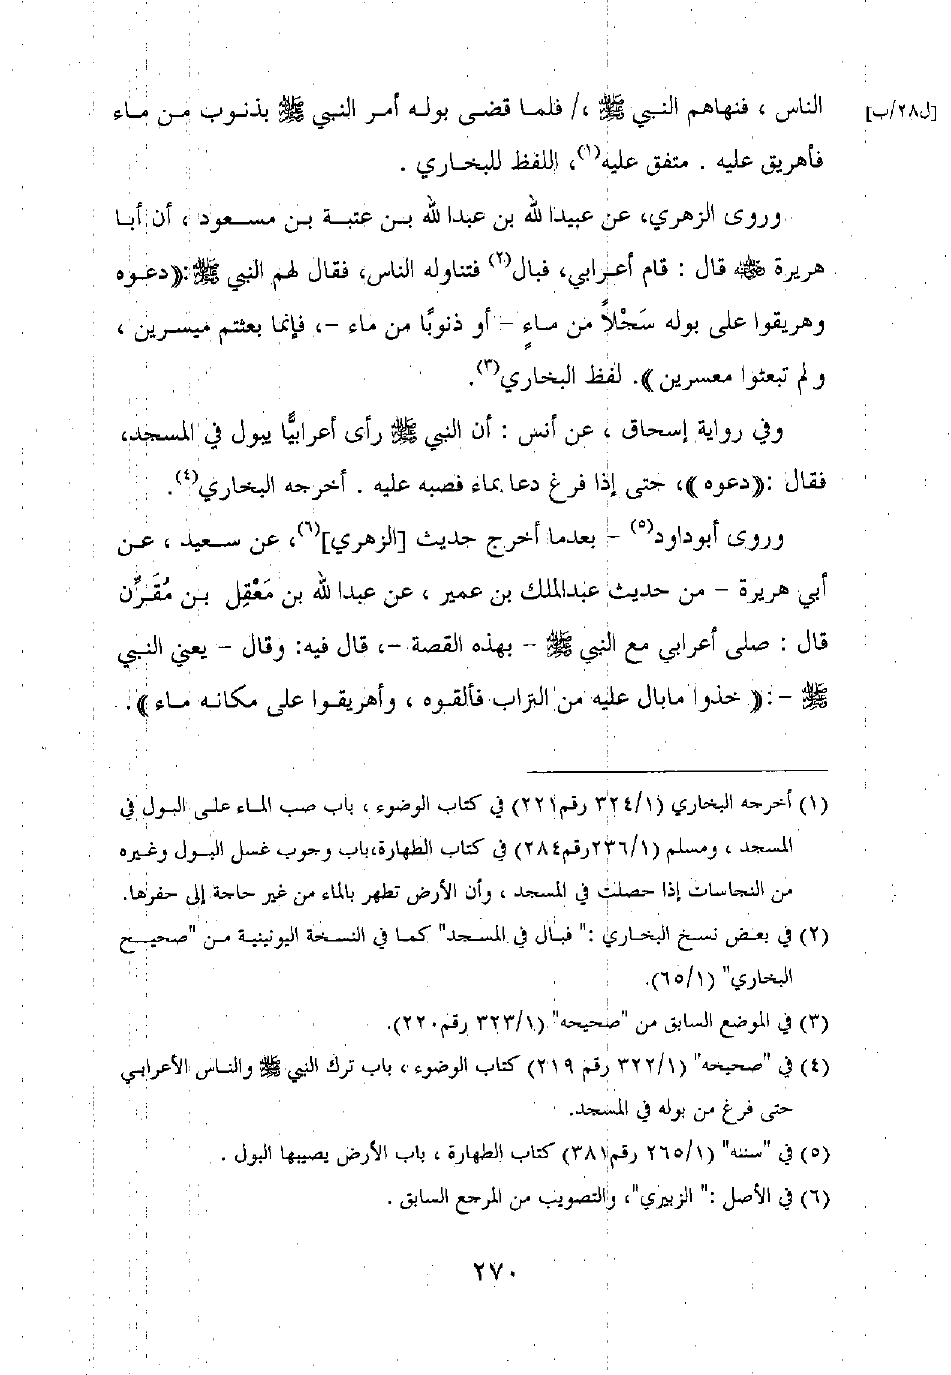 [ل٢٨/ب]
الناس ، فنهاهم النبي ﷺ ،/ فلما قضى بوله أمر النبي ﷺ بذنوب من ماء
فأهريق عليه . متفق عليه(١)، اللفظ للبخاري .
وروى الزهري، عن عبيدا لله بن عبدا لله بن عتبة بن مسعود ، أن أبا
هريرة ﷺ قال : قام أعرابي، فبال(٢) فتناوله الناس، فقال لهم النبي ﷺ:((دعوه
وهريقوا على بوله سَجْلاً من ماءٍ – أو ذنوبًا من ماء –، فإنما بعثتم ميسرين ،
ولم تبعثوا معسرين )). لفظ البخاري(٣).
وفي رواية إسحاق ، عن أنس : أن النبي ﷺ رأى أعرابيًّا يبول في المسجد،
فقال :((دعوه ))، حتى إذا فرغ دعا بماء فصبه عليه . أخرجه البخاري(٤).
وروى أبوداود(٥) – بعدما أخرج حديث [الزهري](٦)، عن سعيد ، عن
أبي هريرة – من حديث عبدالملك بن عمير ، عن عبدا لله بن مَعْقِل بن مُقَرِّن
قال : صلى أعرابي مع النبي ﷺ – بهذه القصة –، قال فيه: وقال – يعني النبي
ﷺ –:(( خذوا مابال عليه من التراب فألقوه ، وأهريقوا على مكانه ماء )).
(١) أخرجه البخاري (٣٢٤/١ رقم٢٢١) في كتاب الوضوء ، باب صب الماء على البول في
المسجد ، ومسلم (٢٣٦/١رقم٢٨٤) في كتاب الطهارة،باب وجوب غسل البول وغيره
من النجاسات إذا حصلت في المسجد ، وأن الأرض تطهر بالماء من غير حاجة إلى حفرها.
(٢) في بعض نسخ البخاري :" فبال في المسجد" كما في النسخة اليونينية من "صحيح
البخاري" (٦٥/١).
(٣) في الموضع السابق من "صحيحه" (٣٢٣/١ رقم٢٢٠).
(٤) في "صحيحه" (٣٢٢/١ رقم ٢١٩) كتاب الوضوء ، باب ترك النبي ﷺ والناس الأعرابي
حتى فرغ من بوله في المسجد.
(٥) في "سننه" (٢٦٥/١ رقم٣٨١) كتاب الطهارة ، باب الأرض يصيبها البول .
(٦) في الأصل :" الزبيري"، والتصويب من المرجع السابق .
٢٧٠